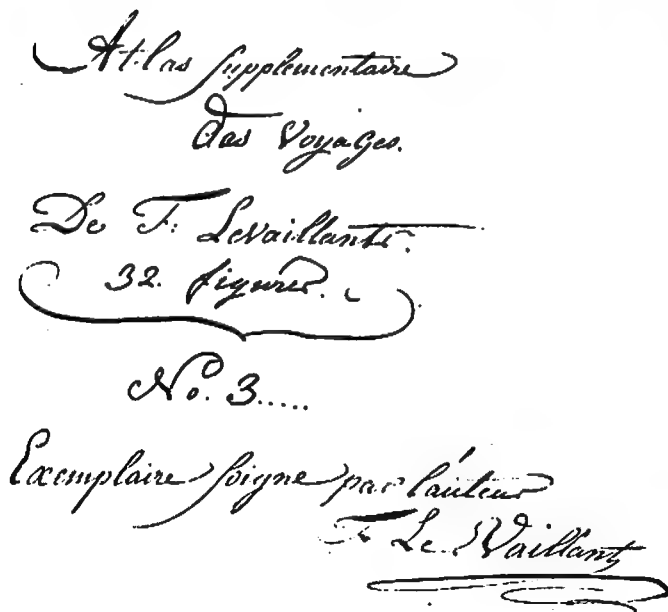 Atlas supplementaire
des Voyages.
De F. Levaillant.
32. figures.
No. 3.....
Exemplaire soigné par l'auteur
F. Le Vaillant